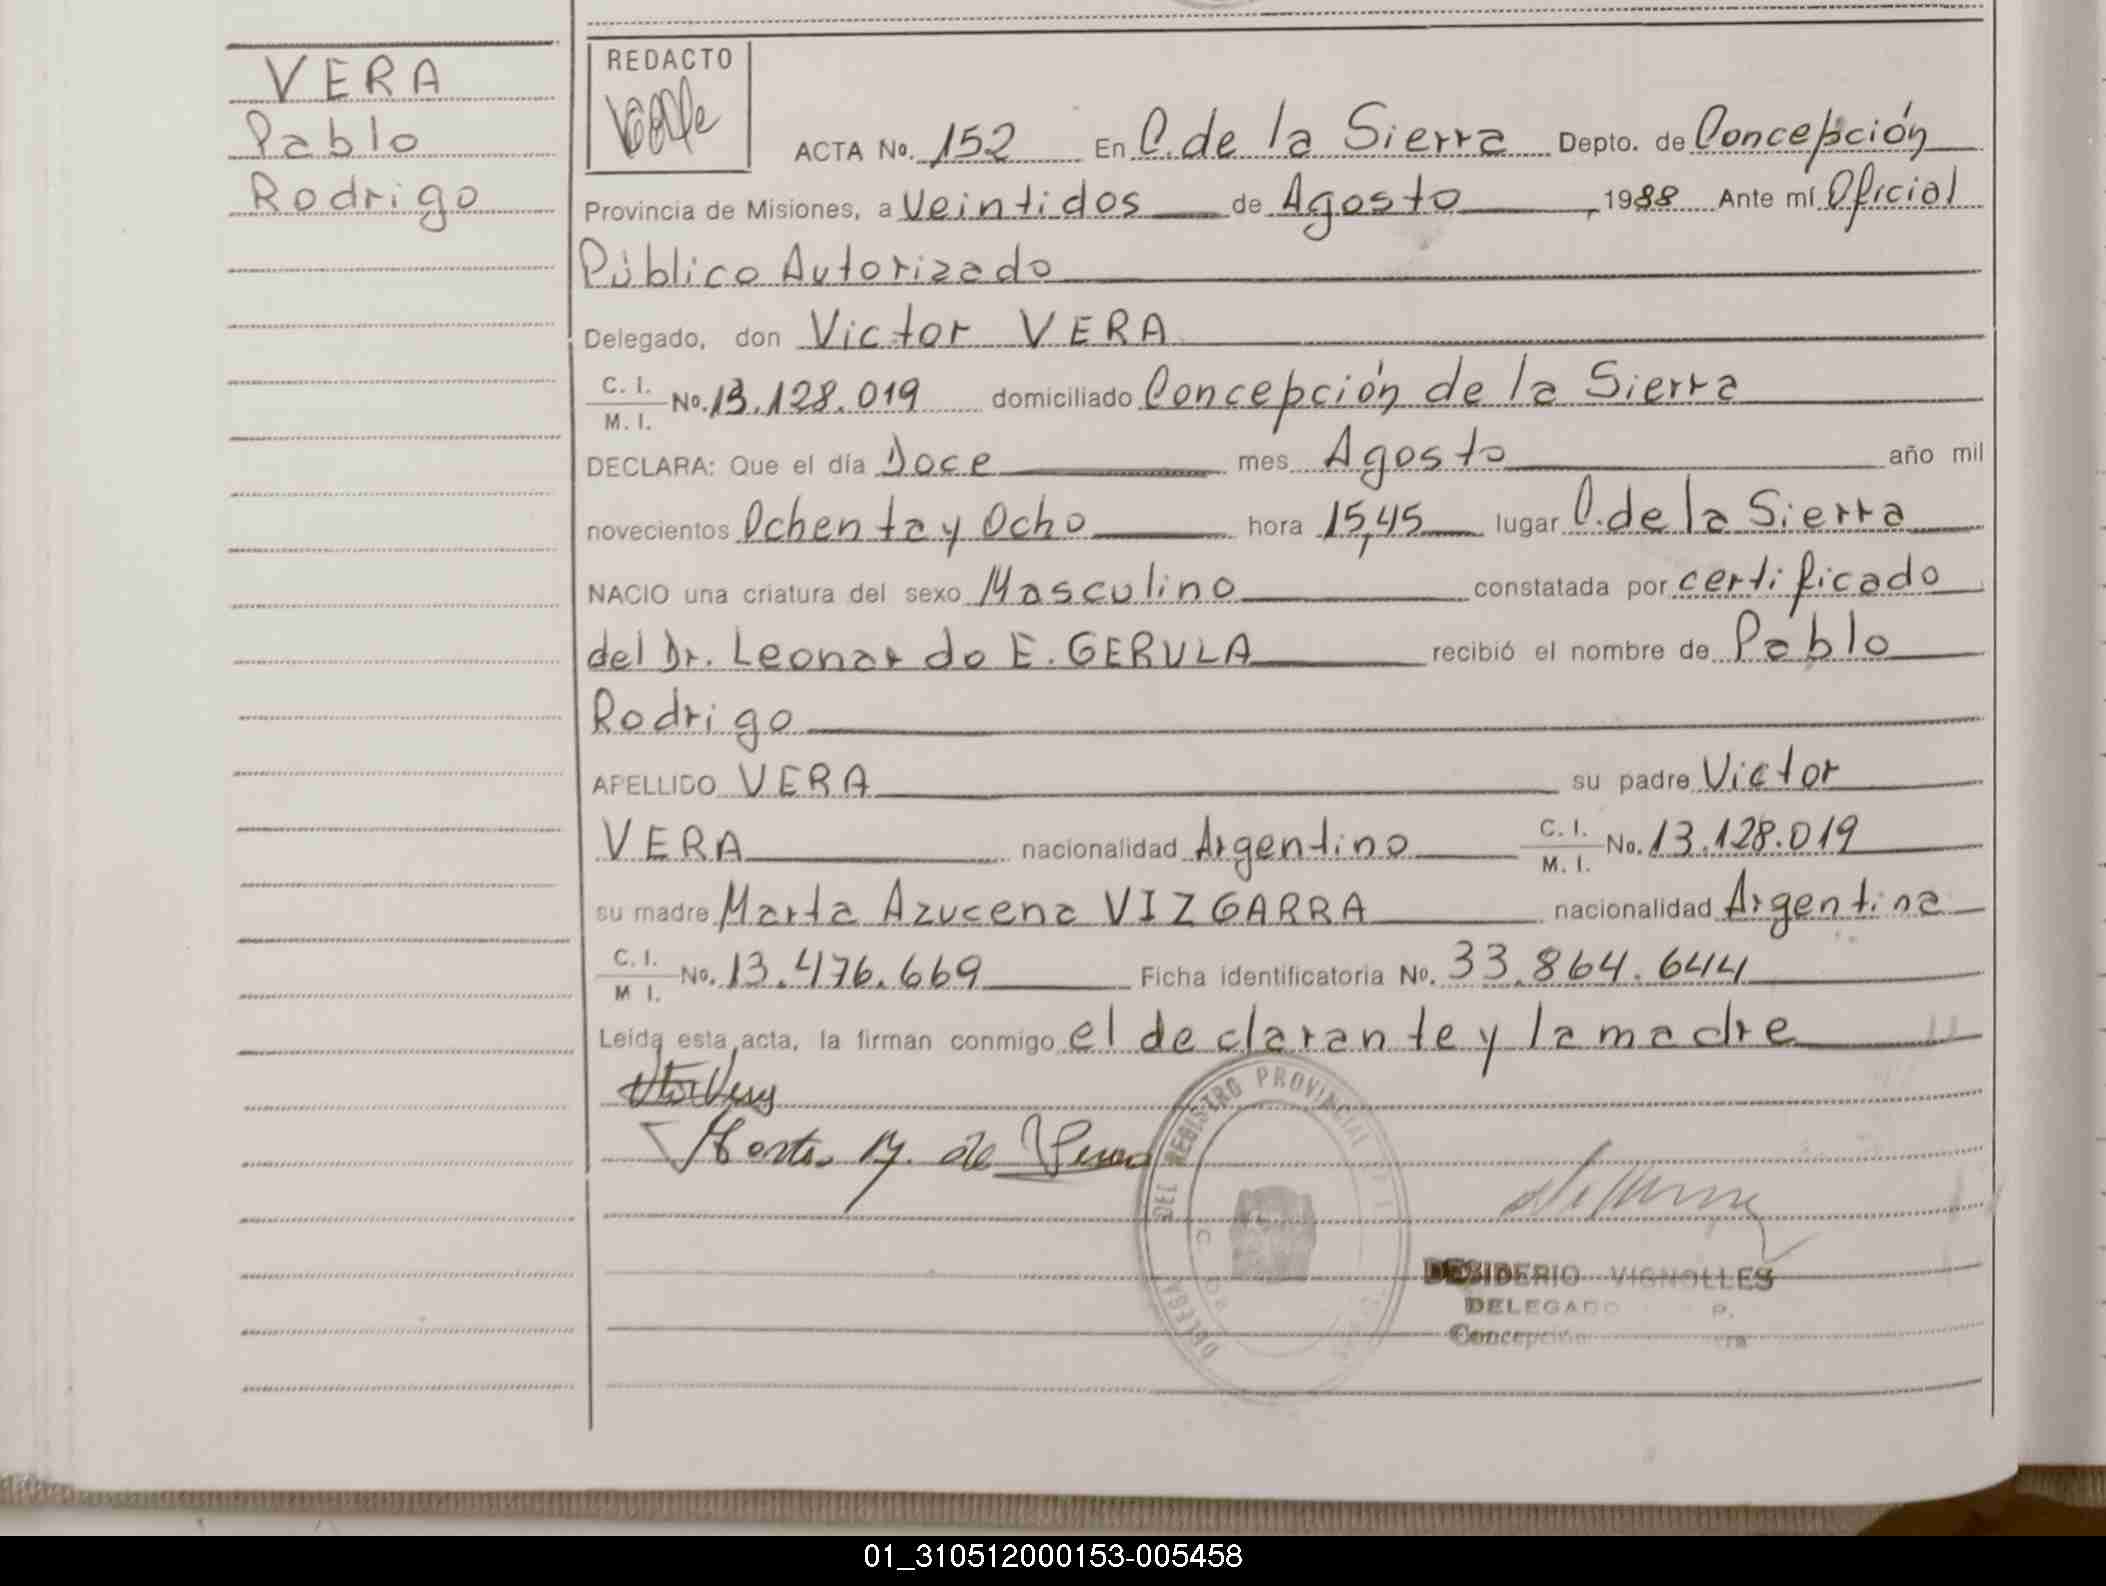 VERA
Pablo
Rodrigo
REDACTO
ACTA No. 152 En C. de la Sierra Depto. de Concepción
Provincia de Misiones, a Veintidos de Agosto, 1988 Ante mí Oficial
Público Autorizado
Delegado, don Victor VERA
C. I.
M. I. No. 13.128.019 domiciliado Concepción de la Sierra
DECLARA: Que el día Doce mes Agosto año mil
novecientos Ochenta y Ocho hora 15,45 lugar C. de la Sierra
NACIO una criatura del sexo Masculino constatada por certificado
del Dr. Leonardo E. GERULA recibió el nombre de Pablo
Rodrigo
APELLIDO VERA su padre Victor
VERA nacionalidad Argentino C. I. M. I. No. 13.128.019
su madre Marta Azucena VIZGARRA nacionalidad Argentina
C. I. M I. No. 13.476.669 Ficha identificatoria No. 33.864.644
Leída esta acta, la firman conmigo el declarante y la madre
DEL REGISTRO PROVINCIAL
DESIDERIO VIGNOLLES
DELEGADO P.
Concepción
01_310512000153-005458